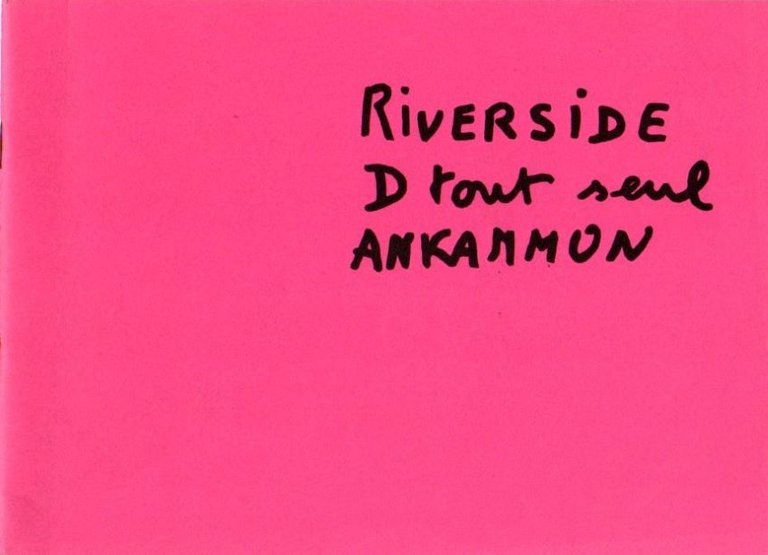 RiVERSiDE
D tout seul
ANKAMMUN